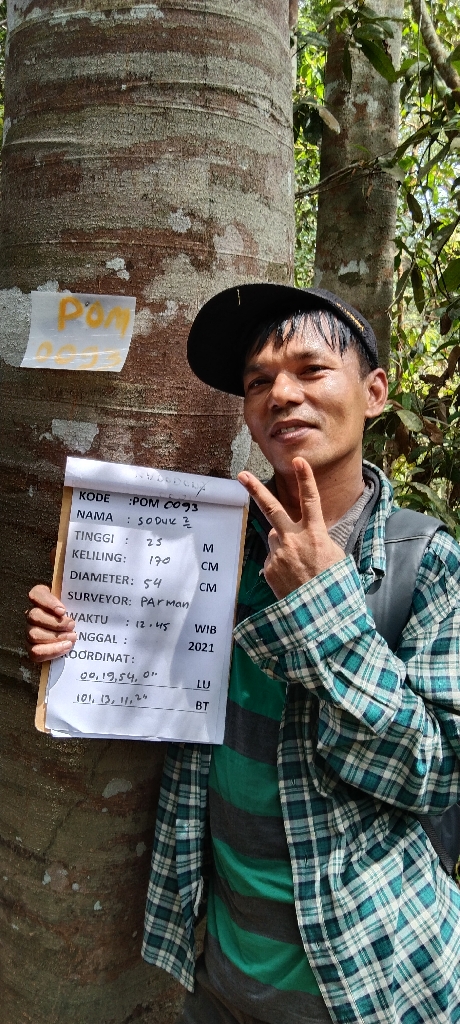 POM
0093
KODE :POM 0093
NAMA : SODUK 2
TINGGI : 25 M
KELILING: 170 CM
DIAMETER: 54 CM
SURVEYOR: PARMAN
WAKTU : 12.45 WIB
ANGGAL : 2021
KOORDINAT:
00,19,54,0" LU
101,13,11,2" BT